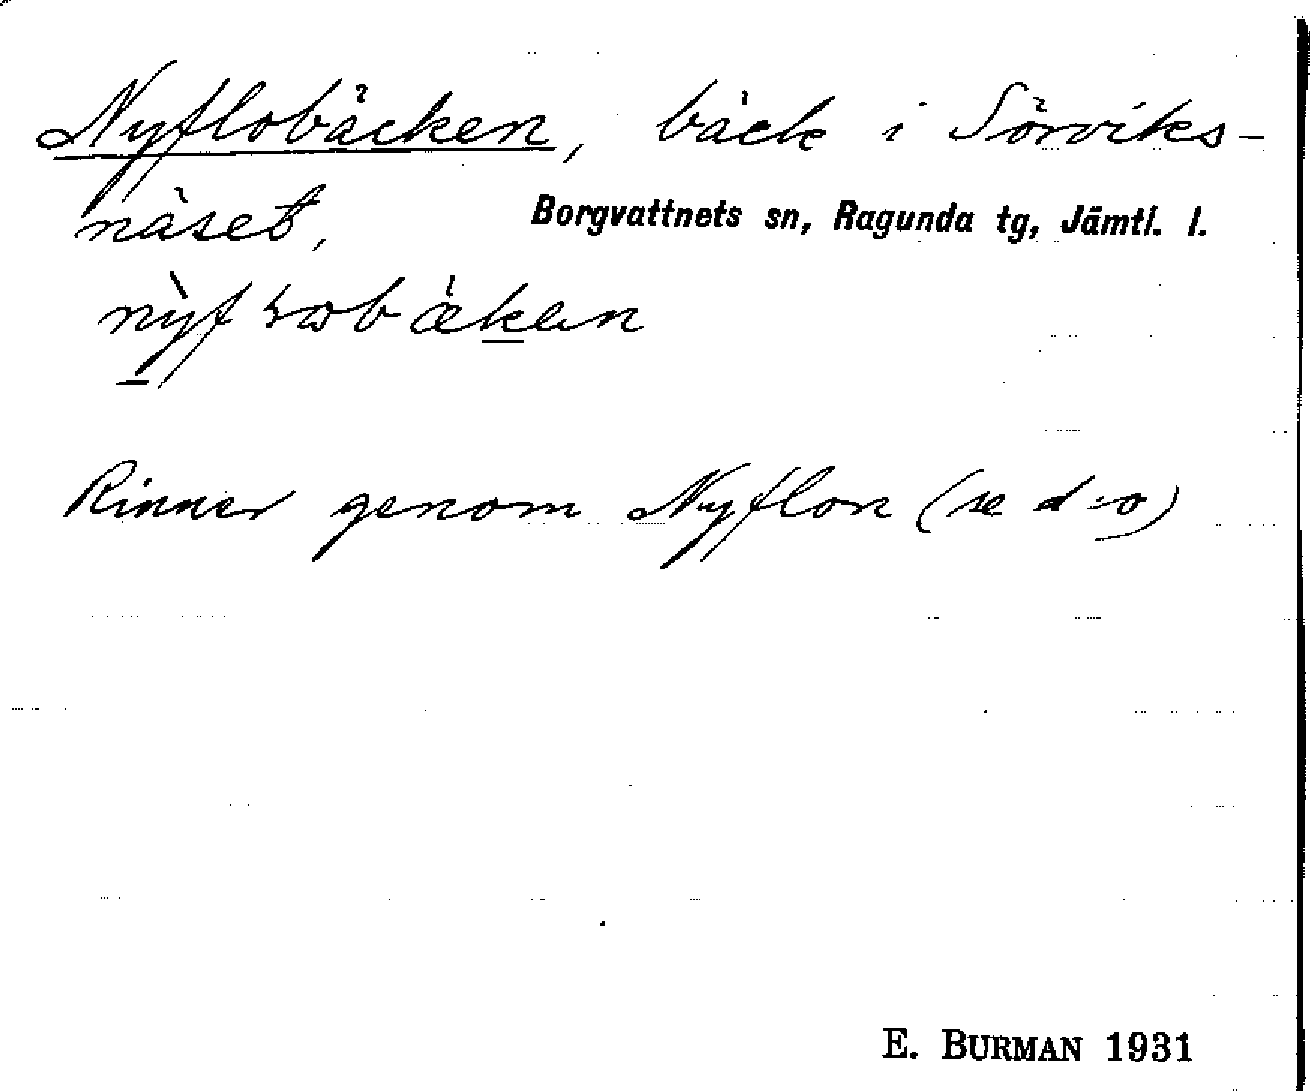 Nyflobäcken, bäck i Sörviks-
näset,
Borgvattnets sn, Ragunda tg, Jämtl. l.
Rinner genom Nyflon (se d:o)
E. BURMAN 1931